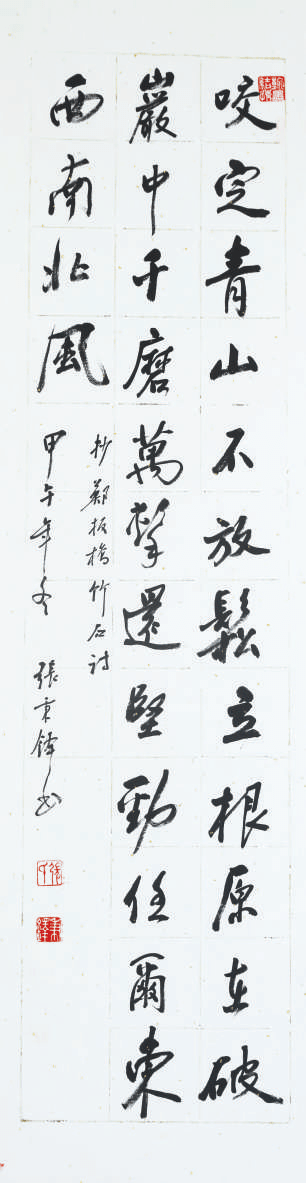 咬定青山不放鬆立根原在破
巖中千磨萬擊還堅勁任爾東
西南北風
抄鄭板橋竹石詩
甲午年冬 張東鋒書